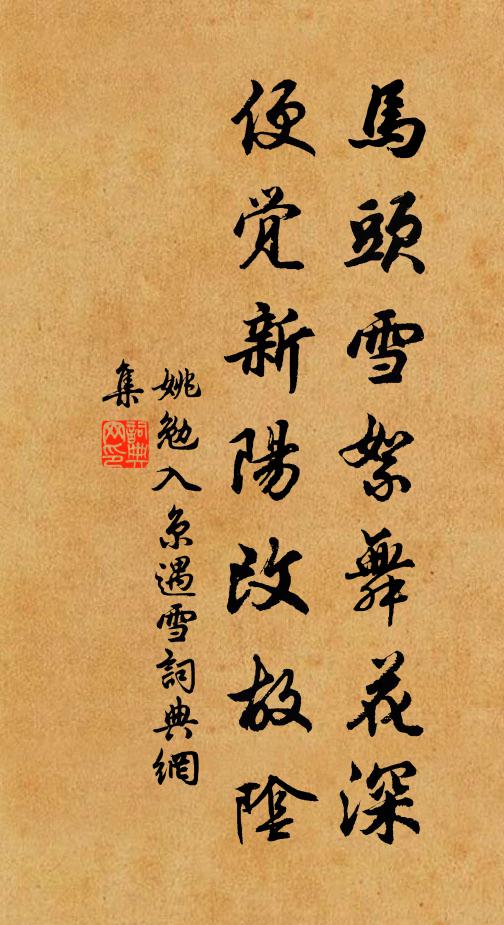 馬頭雪絮舞花深
便觉新陽改故陰
姚勉入京遇雪詞典網
集
詞典网印